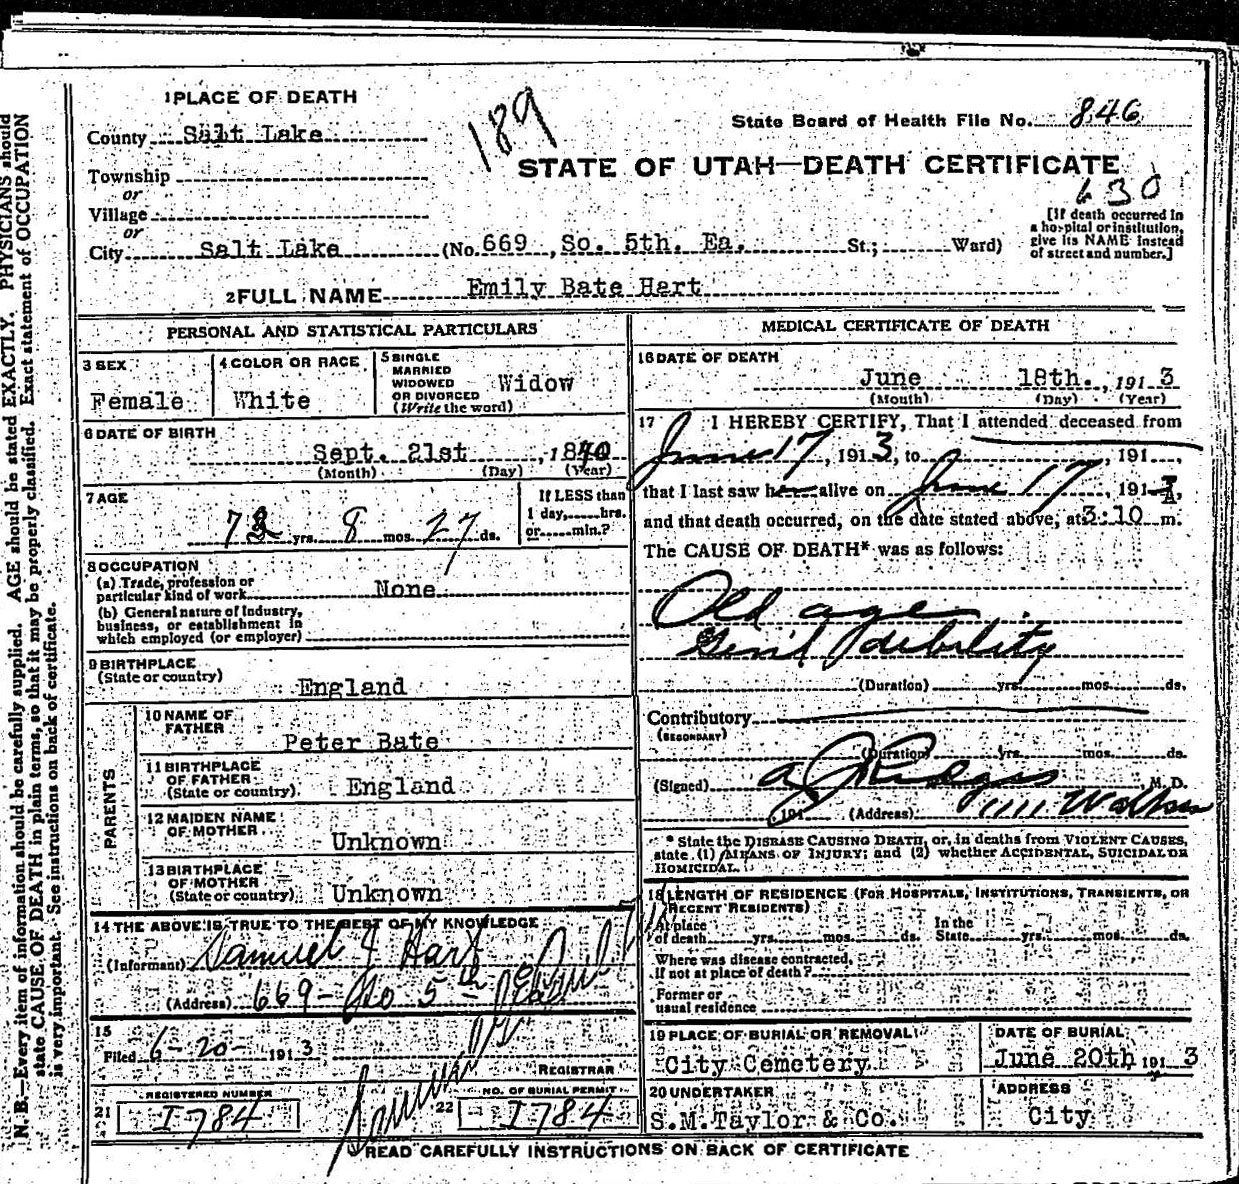 1 PLACE OF DEATH
County Salt Lake
189
State Board of Health File No. 846
STATE OF UTAH—DEATH CERTIFICATE
Township
or
Village
or
City Salt Lake (No. 669, So. 5th. Ea. St.; Ward)
630
[If death occurred in
a hospital or institution,
give its NAME instead
of street and number.]
2 FULL NAME Emily Bate Hart
PERSONAL AND STATISTICAL PARTICULARS
3 SEX
Female
4 COLOR OR RACE
White
5 SINGLE
MARRIED
WIDOWED
OR DIVORCED
(Write the word)
Widow
6 DATE OF BIRTH
Sept. 21st, 1840
(Month) (Day) (Year)
7 AGE
72 yrs. 8 mos. 27 ds.
If LESS than
1 day, hrs.
or min.?
8 OCCUPATION
(a) Trade, profession or
particular kind of work None
(b) General nature of Industry,
business, or establishment in
which employed (or employer)
9 BIRTHPLACE
(State or country)
England
PARENTS
10 NAME OF
FATHER
Peter Bate
11 BIRTHPLACE
OF FATHER
(State or country) England
12 MAIDEN NAME
OF MOTHER
Unknown
13 BIRTHPLACE
OF MOTHER
(State or country) Unknown
14 THE ABOVE IS TRUE TO THE BEST OF MY KNOWLEDGE
(Informant) Samuel J Hart
(Address) 669 - So 5th Ea
15
Filed 6-20- 1913
REGISTRAR
REGISTERED NUMBER
21 1784
NO. OF BURIAL PERMIT
22 1784
MEDICAL CERTIFICATE OF DEATH
16 DATE OF DEATH
June 18th., 1913
(Month) (Day) (Year)
17 I HEREBY CERTIFY, That I attended deceased from
June 17, 1913, to , 191 ,
that I last saw h alive on June 17, 1913,
and that death occurred, on the date stated above, at 3:10 m.
The CAUSE OF DEATH* was as follows:
Old age
Genil debility
(Duration) yrs. mos. ds.
Contributory
(SECONDARY)
(Duration) yrs. mos. ds.
(Signed) M. D.
, 191 (Address) 1111 Walker
* State the DISEASE CAUSING DEATH, or, in deaths from VIOLENT CAUSES,
state (1) MEANS OF INJURY; and (2) whether ACCIDENTAL, SUICIDAL OR
HOMICIDAL.
18 LENGTH OF RESIDENCE (FOR HOSPITALS, INSTITUTIONS, TRANSIENTS, OR
RECENT RESIDENTS)
At place
of death yrs. mos. ds.
In the
State yrs. mos. ds.
Where was disease contracted,
if not at place of death?
Former or
usual residence
19 PLACE OF BURIAL OR REMOVAL
City Cemetery
DATE OF BURIAL
June 20th, 1913
20 UNDERTAKER
S.M.Taylor & Co.
ADDRESS
City
READ CAREFULLY INSTRUCTIONS ON BACK OF CERTIFICATE
N. B.—Every item of information should be carefully supplied. AGE should be stated EXACTLY. PHYSICIANS should
state CAUSE OF DEATH in plain terms, so that it may be properly classified. Exact statement of OCCUPATION
is very important. See instructions on back of certificate.